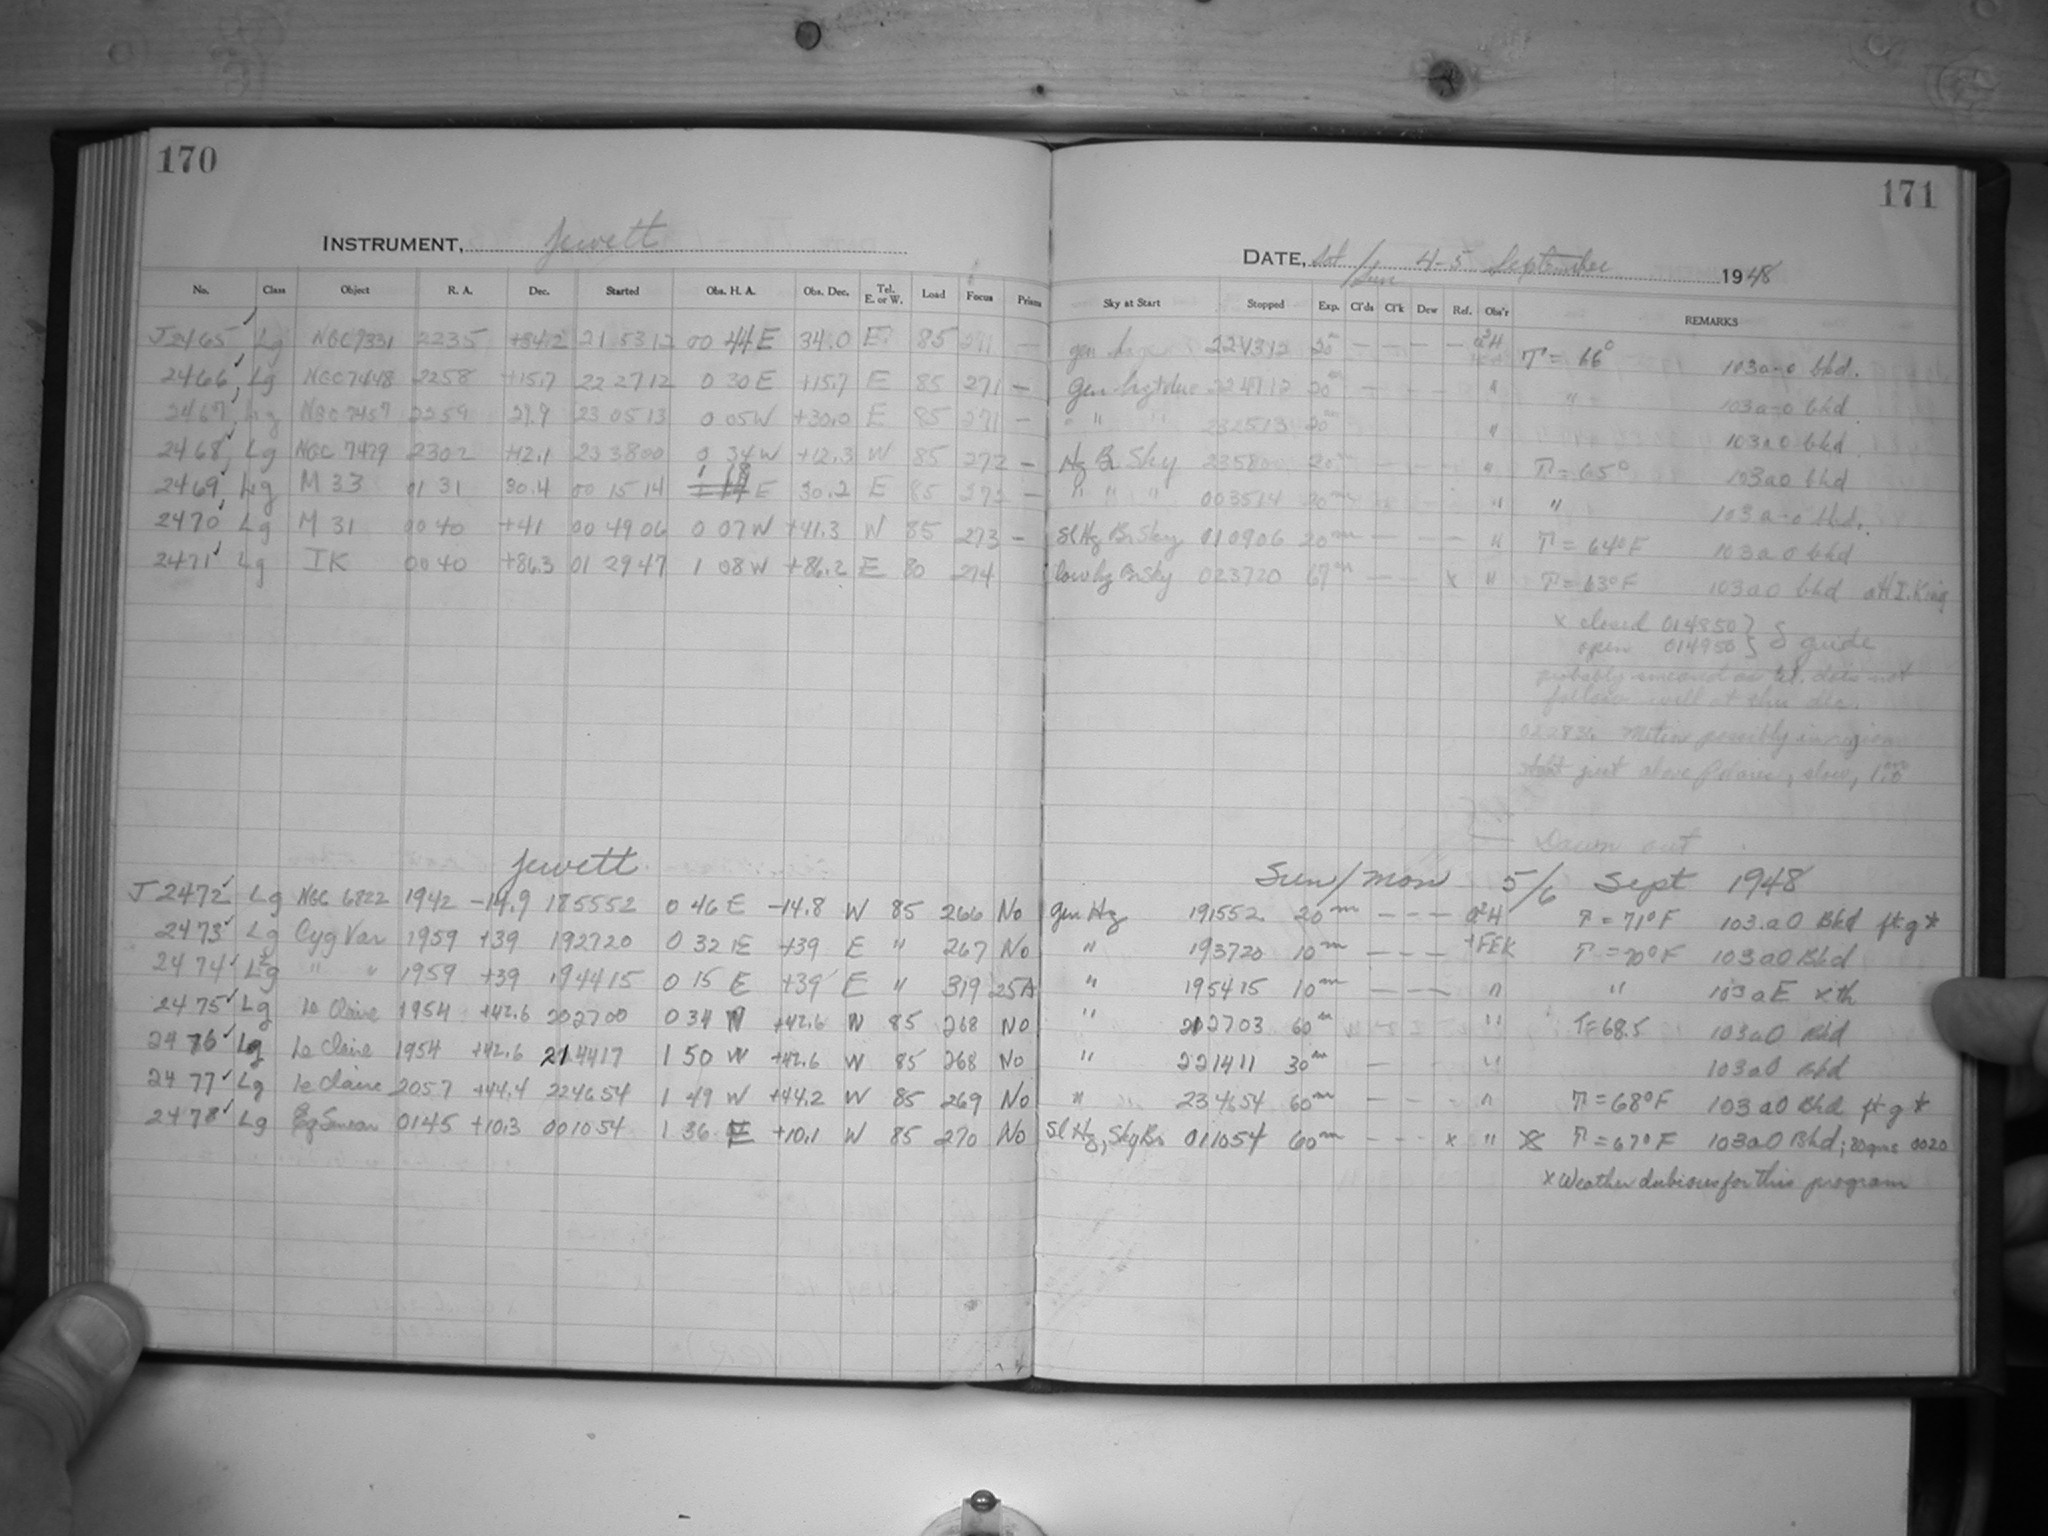 170
171
INSTRUMENT, Jewett
DATE, Sat/Sun 4-5 September 1948
No. Class Object R. A. Dec. Started Obs. H. A. Obs. Dec. Tel. E. or W. Load Focus Prism Sky at Start Stopped Exp. Cl'ds Cl'k Dew Ref. Obs'r REMARKS
J2465 Lg NGC7331 2235 21 53 12 00 44 E 34.0 E 85 271 — gen 20m — — — — a2H T = 66° 103a-o bhd.
2466 Lg NGC7448 2258 +15.7 22 27 12 0 30 E +15.7 E 85 271 — gen hz + dew 224712 20m — — — " " 103a-o bhd
2467 Lg NGC 7457 2259 29.9 23 05 13 0 05 W +30.0 E 85 271 — " " " 232513 20m " 103a0 bhd
2468 Lg NGC 7479 2302 +12.1 23 38 00 0 34 W +12.3 W 85 272 — Hz Br Sky 235800 20m — — — — " T = 65° 103a0 bhd
2469 Lg M 33 01 31 30.4 00 15 14 1 18 E 30.2 E 85 272 — " " " 003514 20m — — — " " 103a-o bhd.
2470 Lg M 31 00 40 +41 00 49 06 0 07 W +41.3 W 85 273 — Sl Hz Br Sky 010906 20m — — — — " T = 64°F 103a0 bhd
2471 Lg IK 00 40 +86.3 01 29 47 1 08 W +86.2 E 80 274 low hz Br Sky 023720 67m — — x " T = 63°F 103a0 bhd aH I. King
x closed 014850 } δ guide
open 014950
probably smeared as tel. does not
follow well at this dec.
022836 Meteor possibly in region
just above Polaris, slow,
Dawn out
Jewett Sun/Mon 5/6 Sept 1948
J 2472 Lg NGC 6822 1942 -14.9 185552 0 46 E -14.8 W 85 266 No gen Hz 191552 20m — — — a2H T = 71°F 103.a0 Bhd ft g*
2473 Lg Cyg Var 1959 +39 192720 0 32 E +39 E " 267 No " 193720 10m — — — +FEK T = 70°F 103a0 Bhd
2474 Lg " " 1959 +39 194415 0 15 E +39 E " 319 25A " 195415 10m — — — " " 103aE xth
2475 Lg Le Claire 1954 +42.6 202700 0 34 W +42.6 W 85 268 No " 212703 60m " T=68.5 103a0 Bhd
2476 Lg Le Claire 1954 +42.6 214417 1 50 W +42.6 W 85 268 No " 221411 30m — — " 103a0 Bhd
2477 Lg Le Claire 2057 +44.4 224654 1 49 W +44.2 W 85 269 No " 234654 60m — — — - " T = 68°F 103a0 Bhd ft g*
2478 Lg Eq Smear 0145 +10.3 001054 1 36 E +10.1 W 85 270 No Sl Hz, Sky Br 011054 60m — — — x " T = 67°F 103a0 Bhd; 0020
x Weather dubious for this program